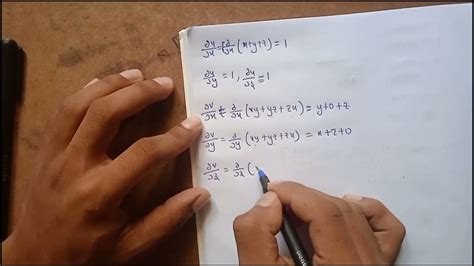 ∂u/∂x = ∂/∂x (x+y+z) = 1
∂u/∂y = 1, ∂u/∂z = 1
∂v/∂x = ∂/∂x (xy+yz+zx) = y+0+z
∂v/∂y = ∂/∂y (xy+yz+zx) = x+z+0
∂v/∂z = ∂/∂z (